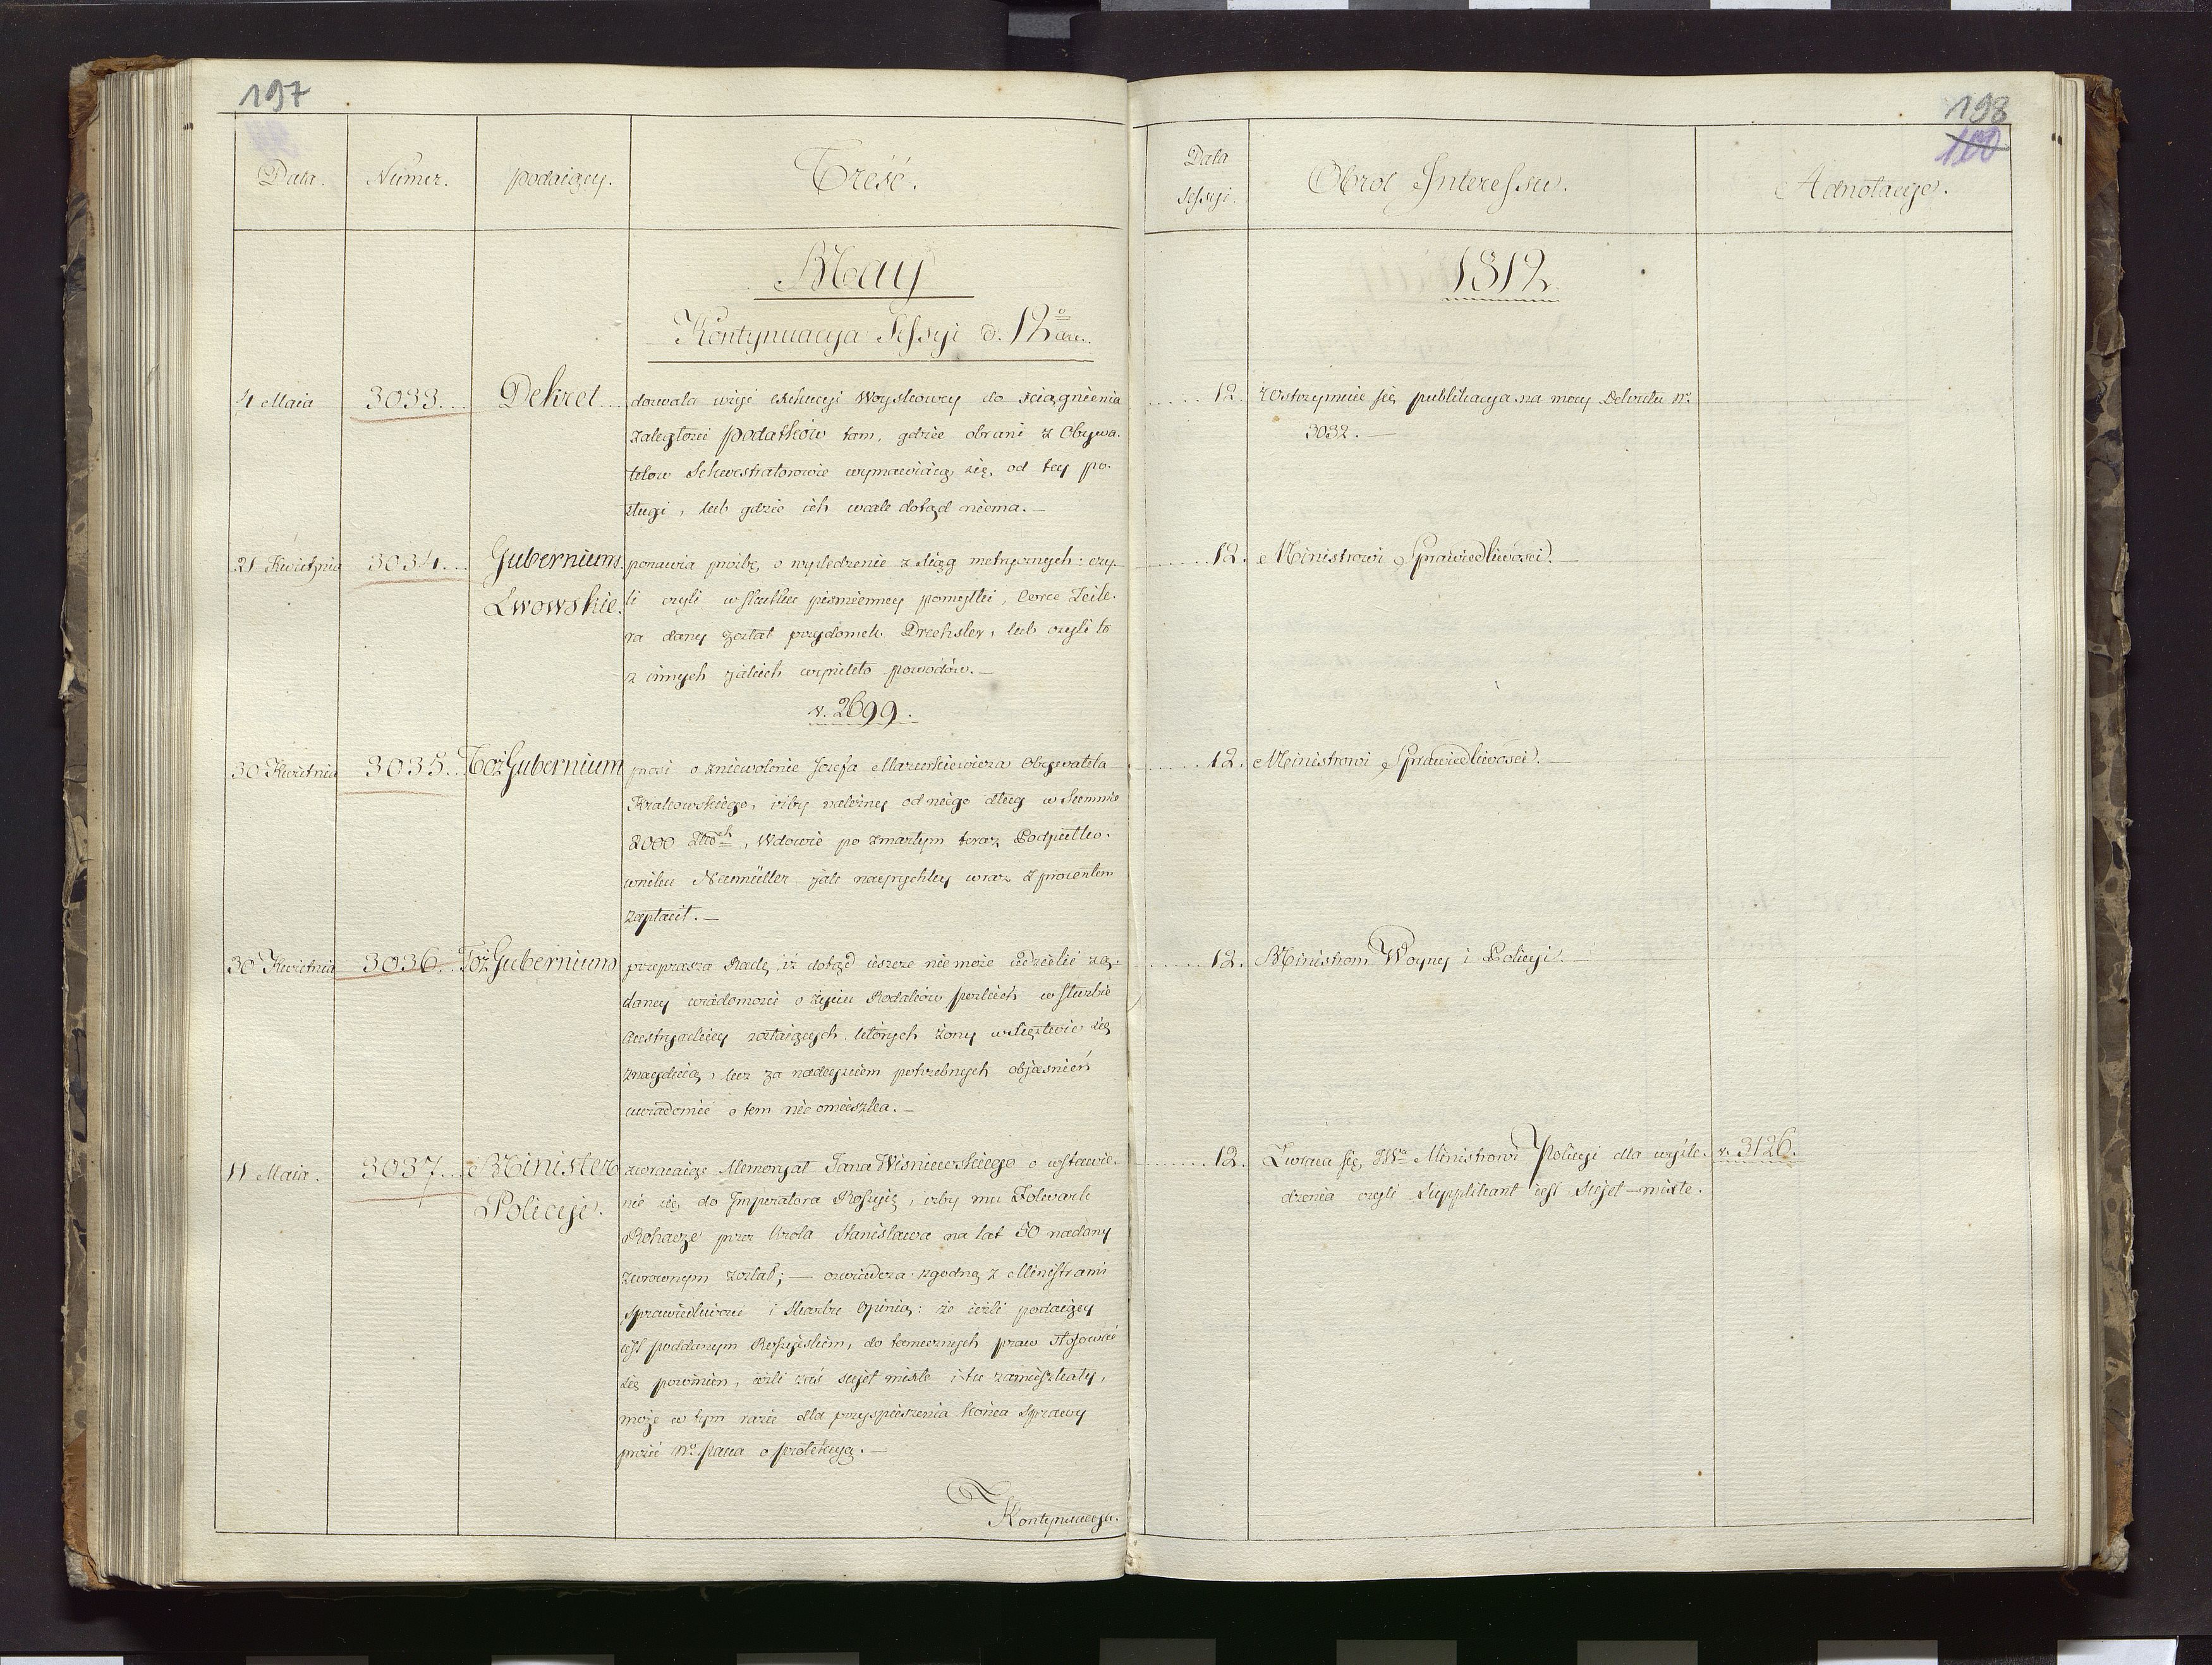 197
Data.
Numer.
podaiący.
Treść.
May
Kontynuacya Sessyi d. 12o
4 Maia
3033.
Dekret
dozwala użyć exekucyi Woyskowey do ściągnienia
zaległości podatków tam, gdzie obrani z Obywa-
telów Sekwestratorowie wymawiaią się od tey po-
sługi, lub gdzie ich wcale dotąd niema.—
21 Kwietnia
3034.
Gubernium
Lwowskie.
ponawia prośbę o wyśledzenie z Xiąg metrycznych: czy-
li czyli w skutku piśmienney pomyłki, Corce Zeile-
ra dany został przydomek Drechsler, lub czyli to
z innych jakich wynikło powodów.—
v. 2699.
30 Kwietnia
3035.
Toż Gubernium
prosi o zniewolenie Jozefa Obywatela
Krakowskiego, iżby należny od niego dług w Summie
2000 , Wdowie po zmarłym teraz Podpułko-
wniku Neumüller jak nayprychley wraz z procentem
zapłacił.—
30 Kwietnia
3036.
Toż Gubernium
przeprasza Radę, iż dotąd ieszcze niemoże udzielić żą-
daney wiadomości o życiu Rodaków polskich w służbie
Austryackiey zostaiących, których żony w Xięstwie się
znayduią, lecz za nadeyściem potrzebnych objaśnień
uwiadomić o tem nieomieszka.—
11 Maia.
3037.
Minister
Policyi.
zwracaiąc Memoryał Jana Wisniewskiego o wstawie-
nie się do Imperatora Rossyi, iżby mu Folwark
Rohacze przez Krola Stanisława na lat 50 nadany
zwroconym został;— oświadcza zgodną z Ministrami
Sprawiedliwości i Skarbu Opinią: że ieżli podaiący
iest poddanym Rossyiskim, do tamecznych praw stosować
się powinien, ieżli zaś sujet mixte i tu zamieszkały,
może w tym razie dla przyspieszenia końca Sprawy
prosić o protekcyą.—
Kontynuacya.
198
100
Data
Sessyi.
Obrot Interessu.
Adnotacye.
1812.
12.
Wstrzymuie się publikacya na mocy Dekretu Nr
3032.—
12.
Ministrowi Sprawiedliwości.—
12.
Ministrowi Sprawiedliwości.—
12.
Ministrom Woyny i Policyi.—
12.
Zwraca się JWu Ministrowi Policyi dla wyśle-
dzenia czyli Supplikant iest Sujet-mixte.
v. 3126.